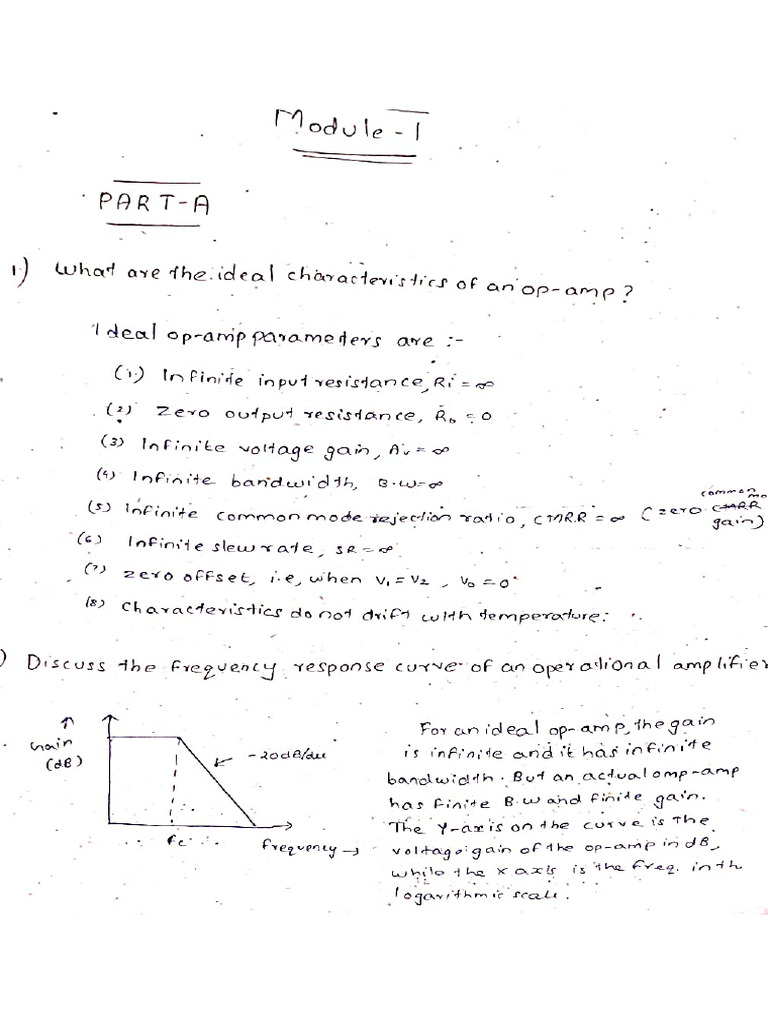 Module-1
PART-A
1.) What are the ideal characteristics of an op-amp?
Ideal op-amp parameters are :-
(1.) Infinite input resistance, Ri = ∞
(2) Zero output resistance, Ro = 0
(3) Infinite voltage gain, Av = ∞
(4) Infinite bandwidth, B.W = ∞
(5) Infinite common mode rejection ratio, CMRR = ∞ (zero common mo
gain)
(6) Infinite slew rate, SR = ∞
(7) zero offset, i.e, when V1 = V2 , Vo = 0
(8) Characteristics do not drift with temperature.
) Discuss the frequency response curve of an operational amplifier
Gain
(dB)
-20dB/dec
fc
frequency →
For an ideal op-amp, the gain
is infinite and it has infinite
bandwidth. But an actual omp-amp
has finite B.W and finite gain.
The Y-axis on the curve is the
voltage gain of the op-amp in dB,
while the x axis is the freq. in th
logarithmic scale.